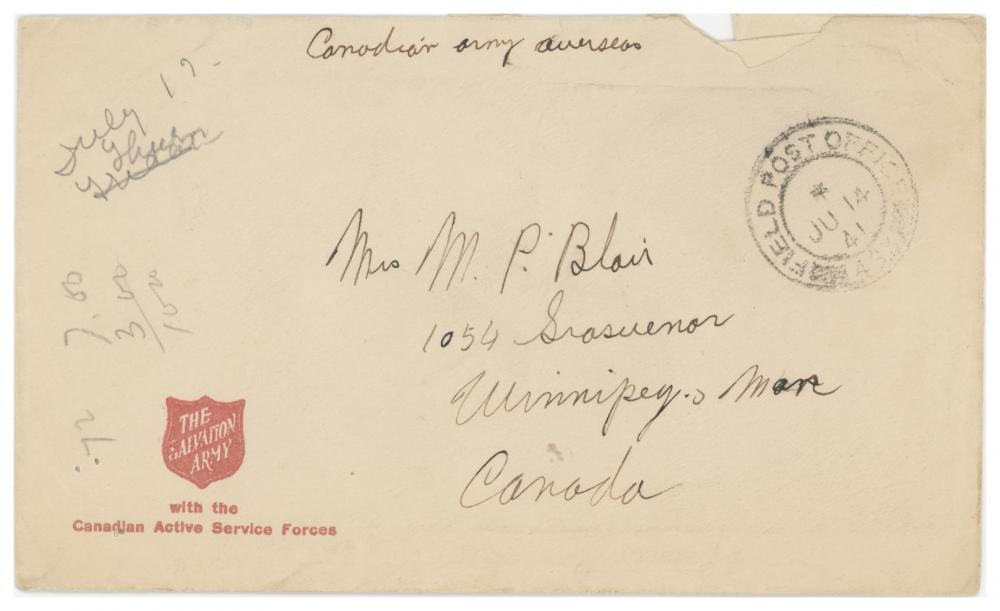 Canadian army overseas
July 17.
Thurs
FIELD POST OFFICE
*
JU 14
41
Mrs M. P. Blair
1054 Grosvenor
Winnipeg. Man
Canada
7.00
3.00
.72
THE
SALVATION
ARMY
with the
Canadian Active Service Forces